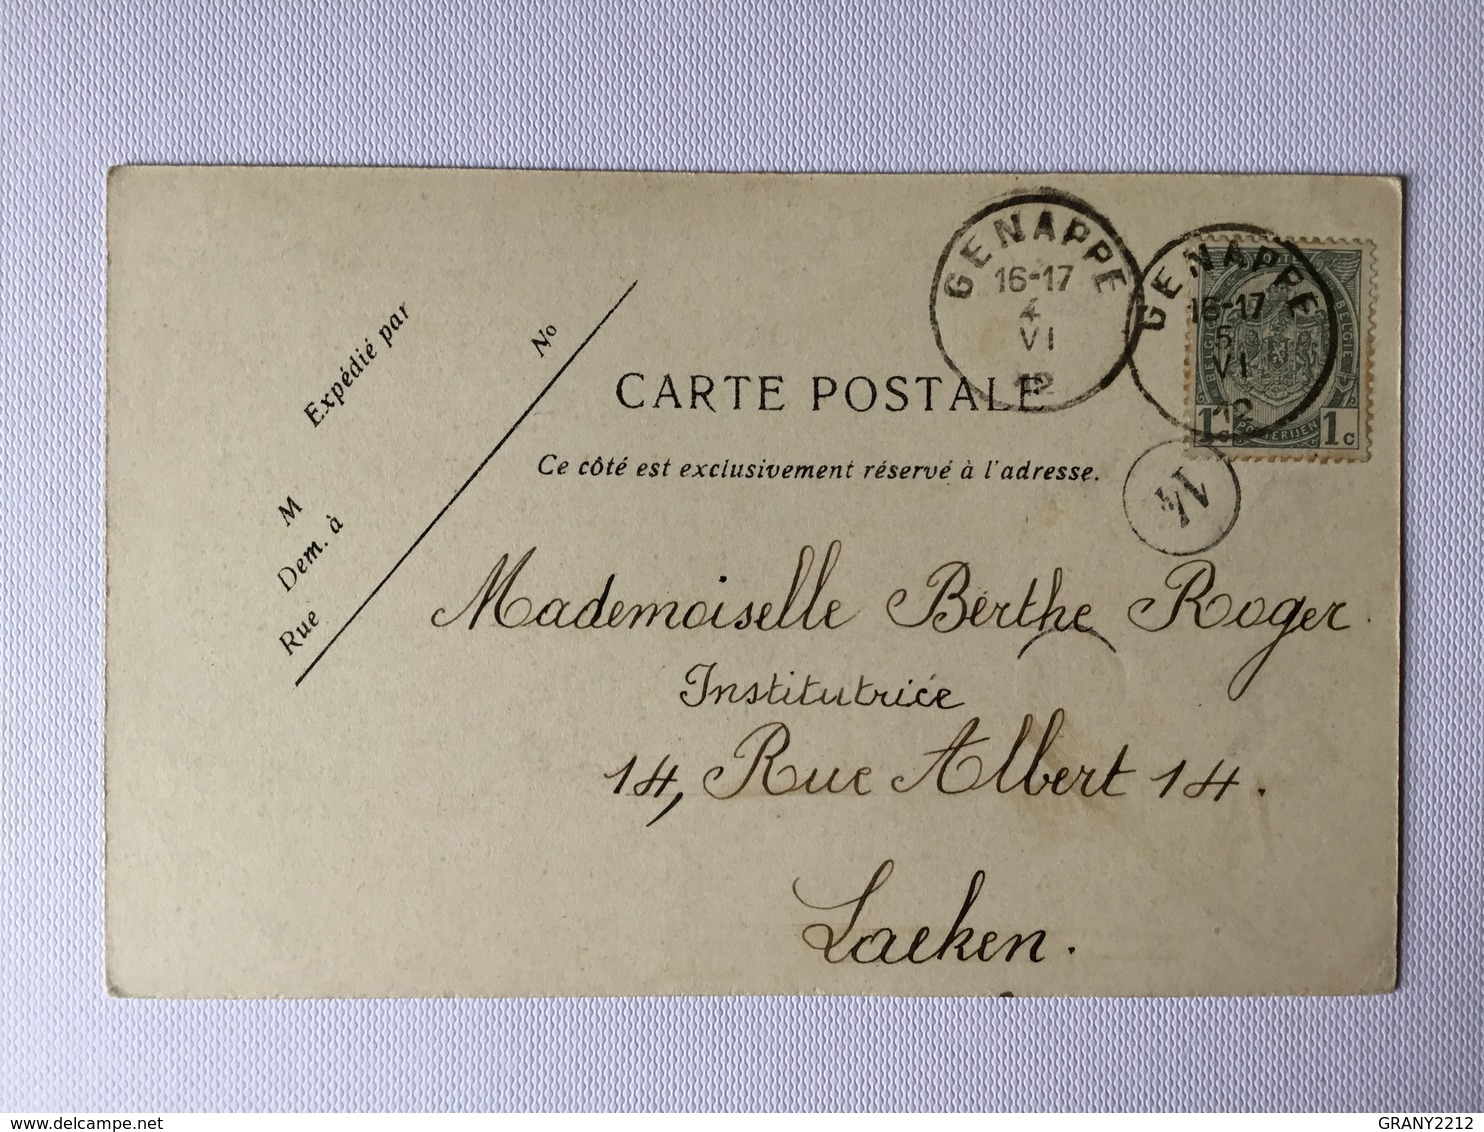 GENAPPE
16-17
4
VI
12
GENAPPE
16-17
5
VI
12
BELGIQUE
BELGIE
POSTERIJEN
1c 1c
14
Expédié par
No
M
Dem. à
Rue
CARTE POSTALE
Ce côté est exclusivement réservé à l'adresse.
Mademoiselle Berthe Roger.
Institutrice
14, Rue Albert 14.
Laeken.
delcampe.net
GRANY2212